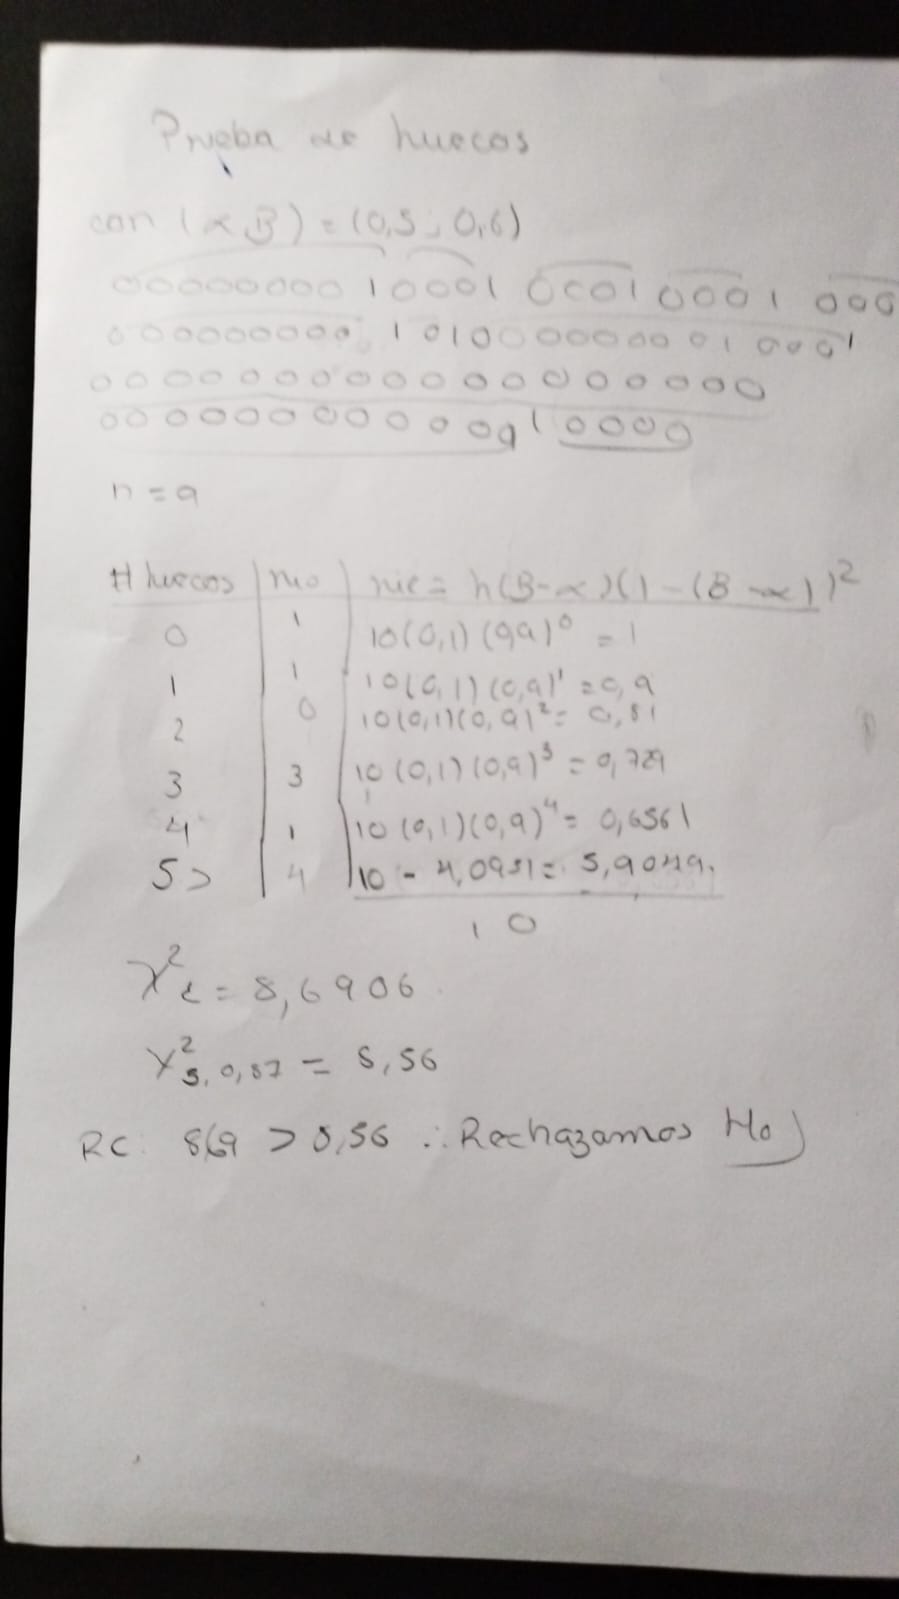 Prueba de huecos
con (α,β) = (0,5 ; 0,6)
000000000 1 0001 0001 0001 000
000000000 1 010000000001 0001
0000000000000000
00000000000 1 0000
n = 9
# huecos | mo | nie = n(β-α)(1-(β-α))²
0 | 1 | 10(0,1)(0,9)⁰ = 1
1 | 1 | 10(0,1)(0,9)¹ = 0,9
2 | 0 | 10(0,1)(0,9)² = 0,81
3 | 3 | 10(0,1)(0,9)³ = 0,729
4 | 1 | 10(0,1)(0,9)⁴ = 0,6561
5> | 4 | 10 - 4,0951 = 5,9049.
10
χ²c = 8,6906
χ²5,0,87 = 8,56
RC: 8,69 > 8,56 ∴ Rechazamos Ho